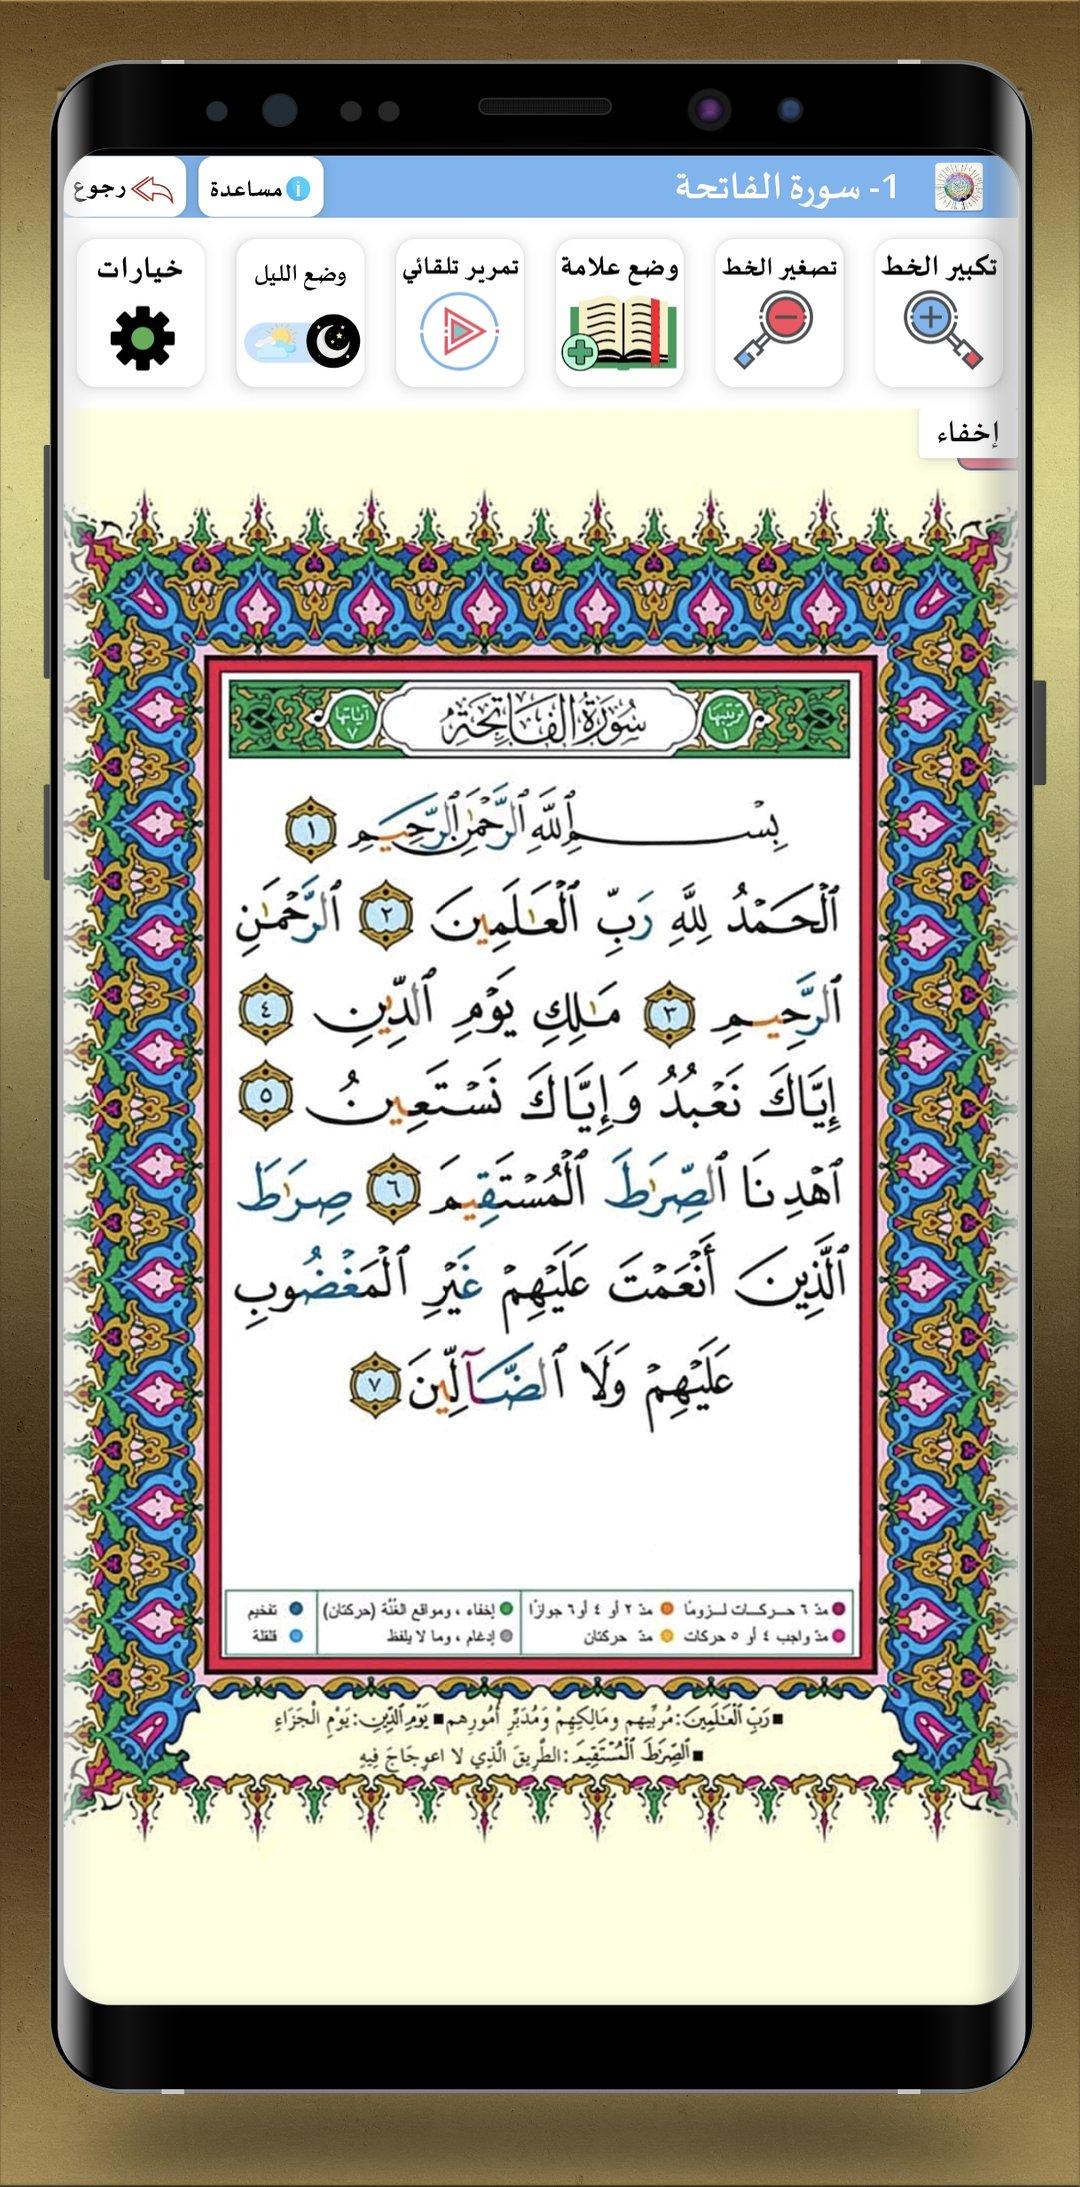 1- سورة الفاتحة
مساعدة
رجوع
تكبير الخط
تصغير الخط
وضع علامة
تمرير تلقائي
وضع الليل
خيارات
إخفاء
ترتيبها ١
سُورَةُ الْفَاتِحَةِ
آياتها ٧
بِسْمِ ٱللَّهِ ٱلرَّحْمَٰنِ ٱلرَّحِيمِ ١
ٱلْحَمْدُ لِلَّهِ رَبِّ ٱلْعَٰلَمِينَ ٢ ٱلرَّحْمَٰنِ
ٱلرَّحِيمِ ٣ مَٰلِكِ يَوْمِ ٱلدِّينِ ٤
إِيَّاكَ نَعْبُدُ وَإِيَّاكَ نَسْتَعِينُ ٥
ٱهْدِنَا ٱلصِّرَٰطَ ٱلْمُسْتَقِيمَ ٦ صِرَٰطَ
ٱلَّذِينَ أَنْعَمْتَ عَلَيْهِمْ غَيْرِ ٱلْمَغْضُوبِ
عَلَيْهِمْ وَلَا ٱلضَّآلِّينَ ٧
مدّ ٦ حركات لزومًا مدّ ٢ أو ٤ أو ٦ جوازًا إخفاء ، ومواقع الغُنّة (حركتان) تفخيم
مدّ واجب ٤ أو ٥ حركات مدّ حركتان إدغام ، وما لا يلفظ قلقلة
■ رَبِّ ٱلْعَٰلَمِينَ: مُربِّيهم ومَالِكِهِمْ وَمُدَبِّرِ أُمُورِهم ■ يَوْمِ ٱلدِّينِ: يَوْمِ الْجَزَاءِ
■ ٱلصِّرَٰطَ ٱلْمُسْتَقِيمَ: الطَّرِيقَ الَّذِي لا اعوِجَاجَ فِيهِ